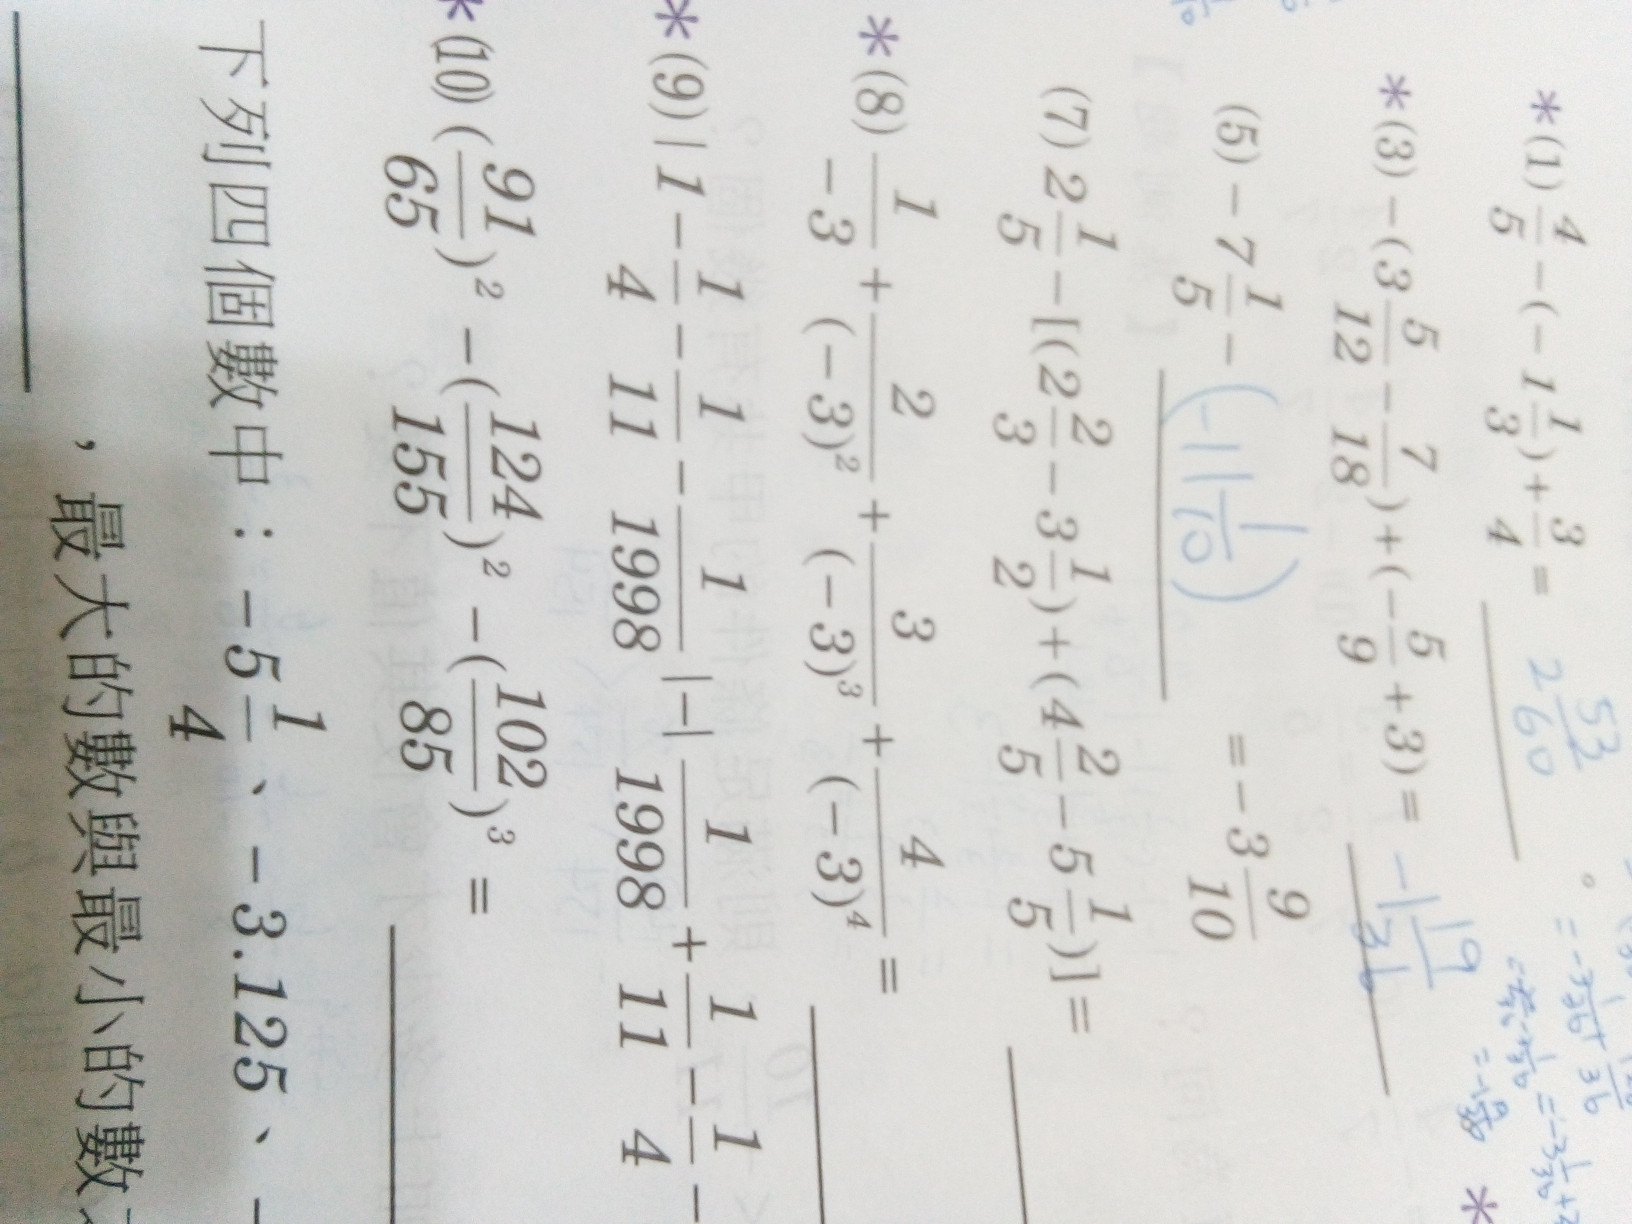 *(1) 4/5 - (-1 1/3) + 3/4 = 2 53/60 。
*(3) -(3 5/12 - 7/18) + (-5/9 + 3) = -1 19/36
(5) -7 1/5 - (-11 1/10) = -3 9/10
(7) 2 1/5 - [(2 2/3 - 3 1/2) + (4 2/5 - 5 1/5)] =
*(8) 1/-3 + 2/(-3)² + 3/(-3)³ + 4/(-3)⁴ =
*(9) |1 - 1/4 - 1/11 - 1/1998| - |1/1998 + 1/11 - 1/4 -
*(10) (91/65)² - (124/155)² - (102/85)³ =
下列四個數中：-5 1/4、-3.125、-
，最大的數與最小的數